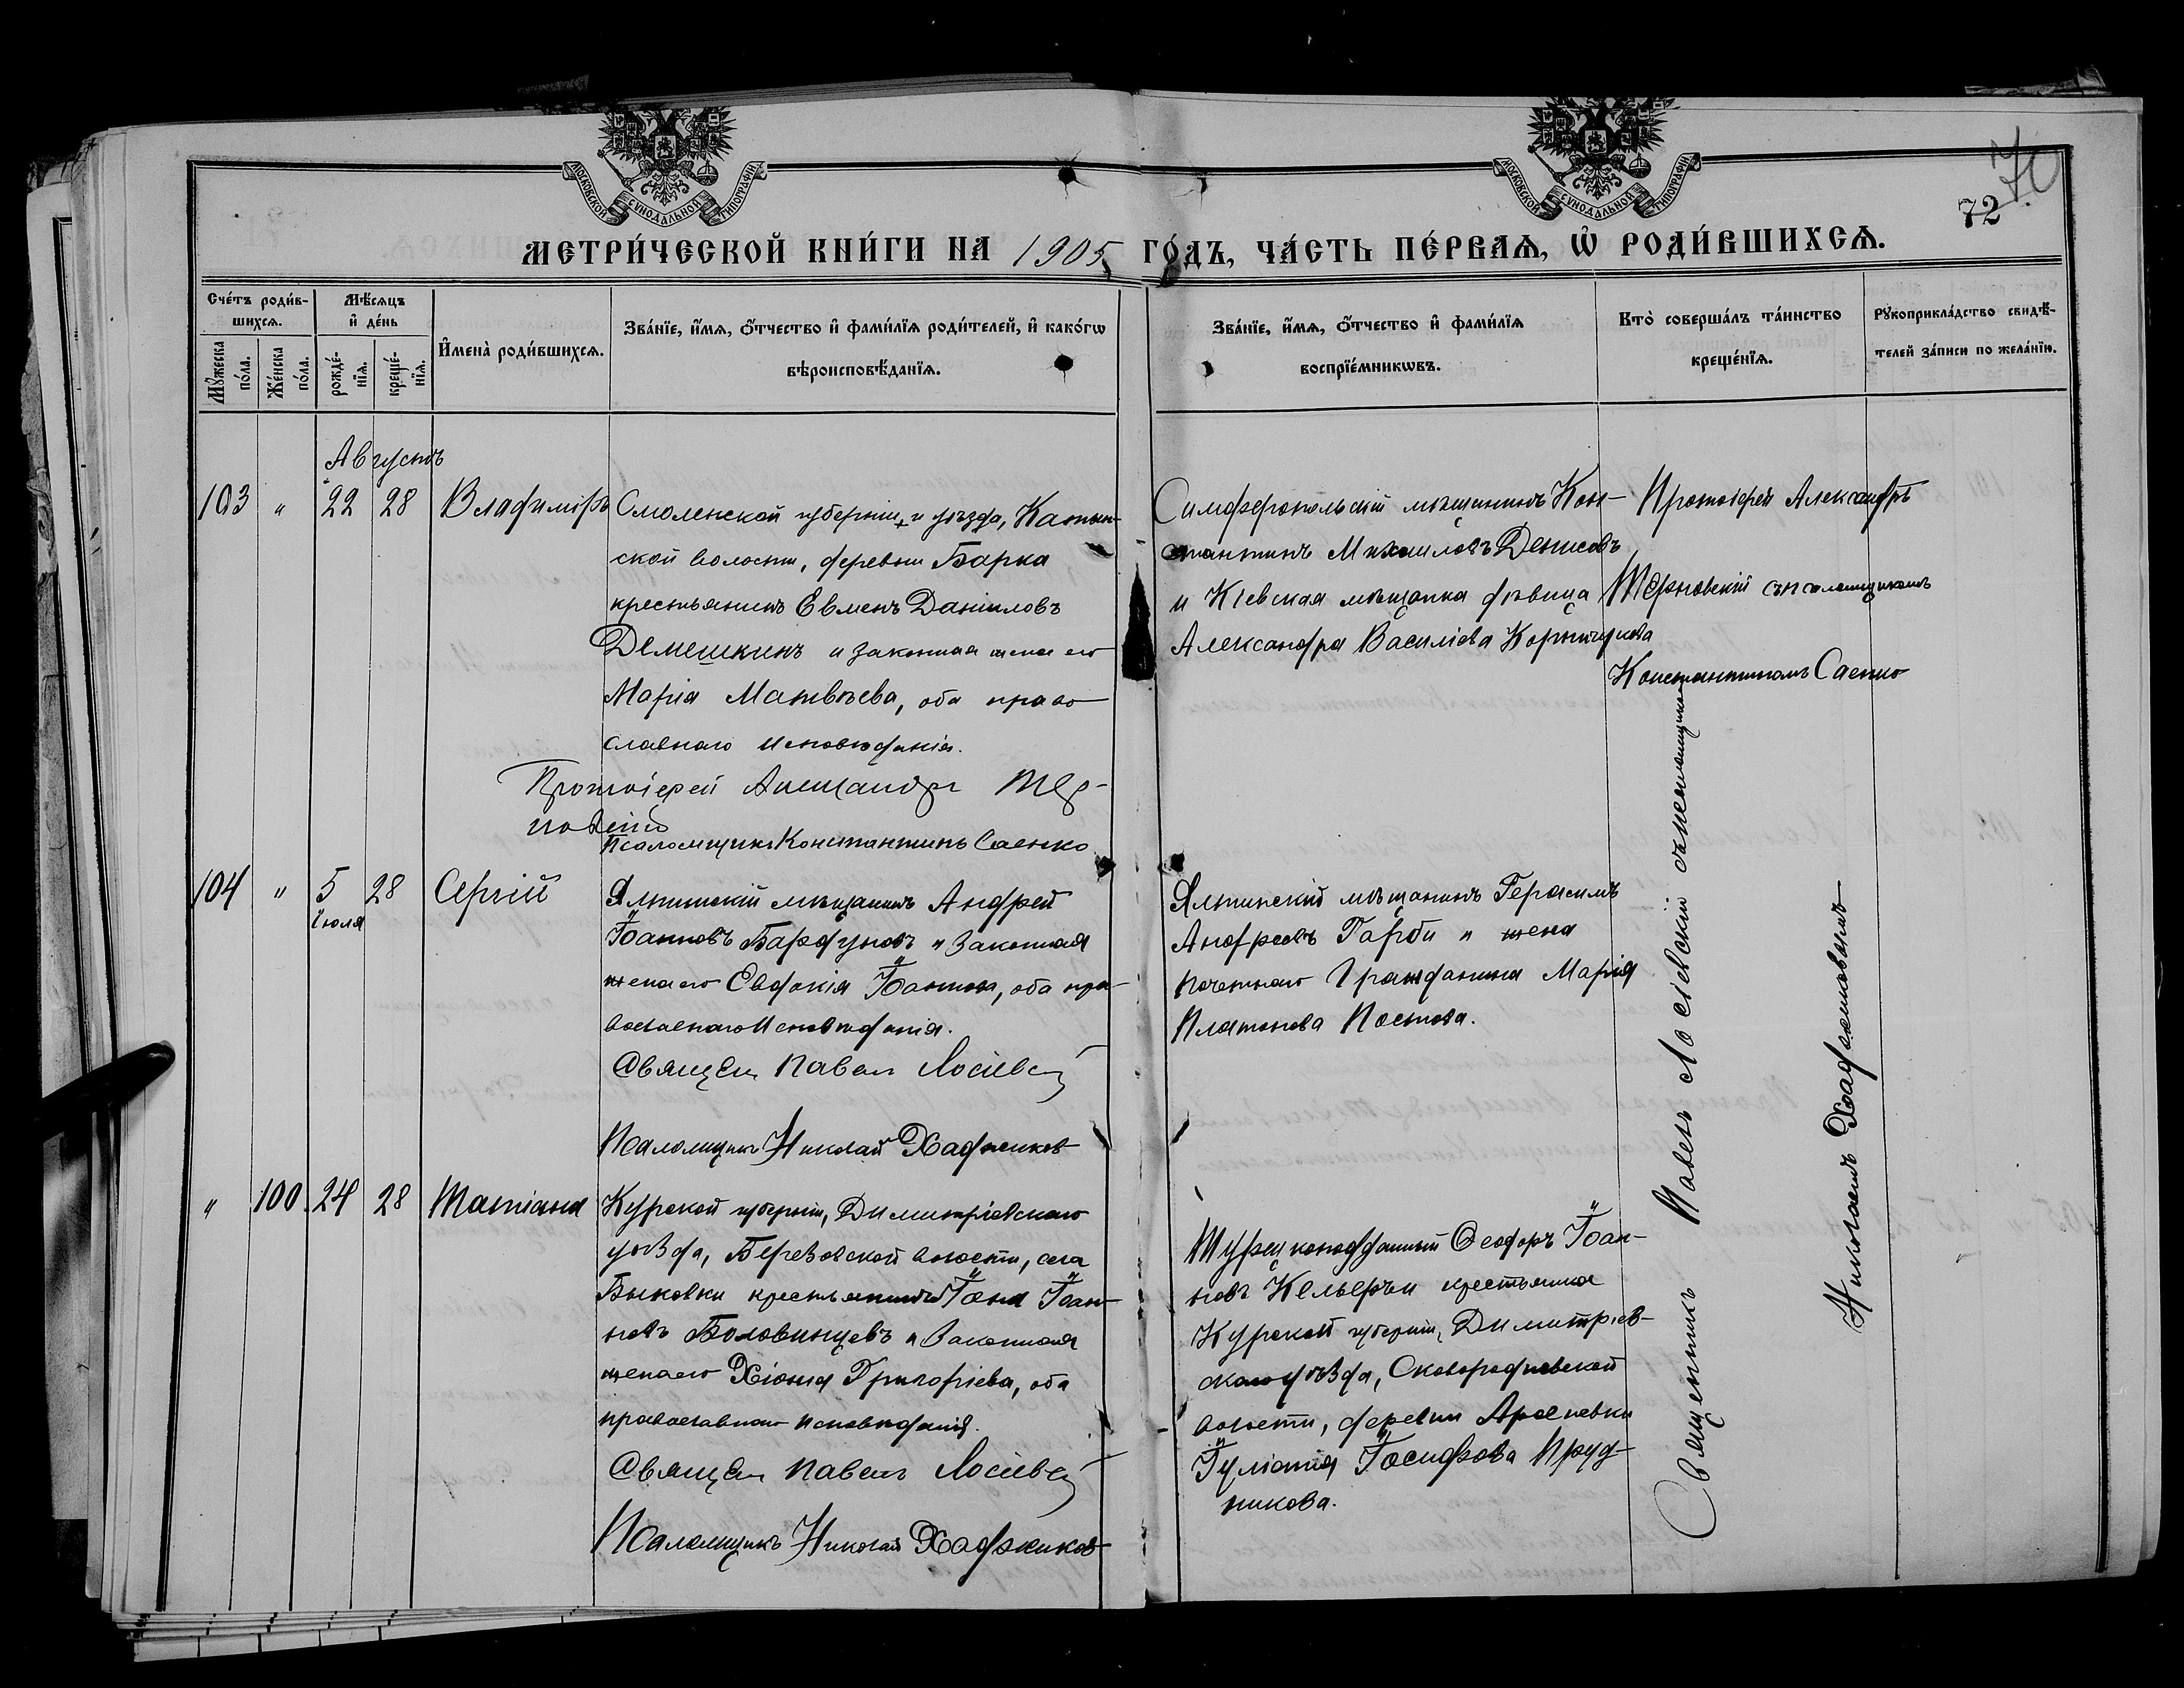 МОСКОВСКОЙ СѴНОДАЛЬНОЙ ТИПОГРАФІИ
МОСКОВСКОЙ СѴНОДАЛЬНОЙ ТИПОГРАФІИ
70
72
МЕТРИ́ЧЕСКОЙ КНИ́ГИ НА 1905 ГО́ДЪ, ЧА́СТЬ ПЕ́РВАѦ, Ѡ҆ РОДИ́ВШИХСѦ.
Сче́тъ роди́в-
шихсѧ.
Мꙋ́жеска по́ла.
Же́нска по́ла.
Мѣ́сѧцъ
и҆ де́нь
рожде́-
нїѧ.
креще́-
нїѧ.
И҆мена̀ роди́вшихсѧ.
Зва́нїе, и҆́мѧ, ѻ҆́тчество и҆ фами́лїѧ роди́телей, и҆ како́гѡ
вѣроисповѣ́данїѧ.
Зва́нїе, и҆́мѧ, ѻ҆́тчество и҆ фами́лїѧ
воспрїе́мникѡвъ.
Кто̀ соверша́лъ та́инство
креще́нїѧ.
Рꙋкоприкла́дство свидѣ́-
телей за́писи по жела́нїю.
Августъ
103 " 22 28 Владиміръ
Смоленской губерніи и уѣзда, Катын-
ской волости, деревни Барка
крестьянинъ Евменъ Даніиловъ
Демешкинъ и законная жена его
Марія Матвѣева, оба право
славнаго исповѣданія.
Протоіерей Александръ Тер-
новскій
Псаломщикъ Константинъ Саенко
Симферопольскій мѣщанинъ Кон-
стантинъ Михаиловъ Денисовъ
и Кіевская мѣщанка дѣвица
Александра Василіева
Протоіерей Александръ
Терновскій съ псаломщикомъ
Константиномъ Саенко
104 " 5 28 Сергій
Іюля
Ялтинскій мѣщанинъ Андрей
Іоанновъ Бардуновъ и законная
жена его Евдокія Іоаннова, оба пра-
вославнаго исповѣданія.
Священ Павелъ Лосіевскій
Псаломщикъ Николай Хаджиновъ
Ялтинскій мѣщанинъ Герасимъ
Андреевъ Гарби и жена
почетнаго гражданина Марія
Платонова Постова.
" 100 24 28 Татіана
Курской губерніи, Димитріевскаго
уѣзда, Березовской волости, села
Быковки крестьянинъ Іоаннъ Іоан-
новъ Боловинцевъ и законная
жена его Хіонія Григоріева, оба
православнаго исповѣданія.
Священ Павелъ Лосіевскій
Псаломщикъ Николай Хаджиновъ
Турецкоподданный Ѳеодоръ Іоан-
новъ и крестьянка
Курской губерніи, Димитріев-
скаго уѣзда, Сковородневской
волости, деревни Арсеневки
Іуліанія Іосифова Пруд-
никова.
Священникъ Павелъ Лосіевскій съ псаломщикомъ
Николаемъ Хаджиновымъ